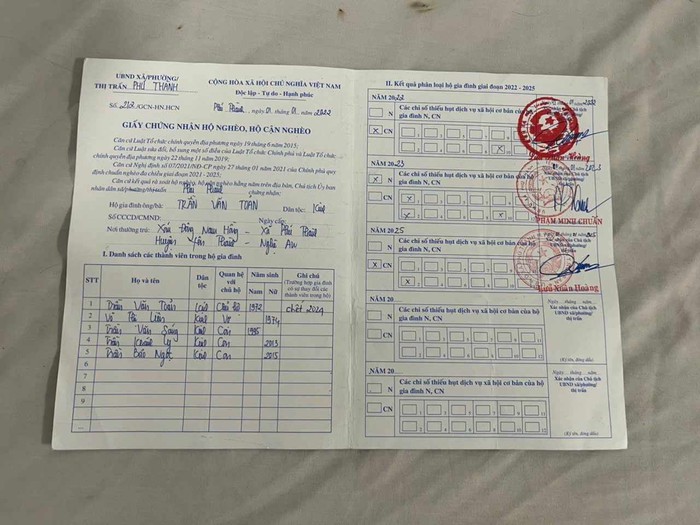 UBND XÃ/PHƯỜNG/
THỊ TRẤN PHÚ THÀNH
CỘNG HÒA XÃ HỘI CHỦ NGHĨA VIỆT NAM
Độc lập - Tự do - Hạnh phúc
Số: /GCN-HN.HCN
ngày 01 tháng 01 năm 2022
GIẤY CHỨNG NHẬN HỘ NGHÈO, HỘ CẬN NGHÈO
Căn cứ Luật Tổ chức chính quyền địa phương ngày 19 tháng 6 năm 2015;
Căn cứ Luật sửa đổi, bổ sung một số điều Luật Tổ chức Chính phủ và Luật Tổ chức
chính quyền địa phương ngày 22 tháng 11 năm 2019;
Căn cứ Nghị định số 07/2021/NĐ-CP ngày 27 tháng 01 năm 2021 của Chính phủ quy
định chuẩn nghèo đa chiều giai đoạn 2021 - 2025;
Căn cứ kết quả rà soát hộ nghèo, hộ cận nghèo hằng năm trên địa bàn, Chủ tịch Ủy ban
nhân dân xã/phường/thị trấn chứng nhận:
Hộ gia đình ông/bà: TRẦN VĂN TOẢN Dân tộc: Kinh
Số CCCD/CMND: Ngày cấp:
Nơi thường trú: Xóm Đông Nam Hồng - Xã Phú Thành
Huyện Yên Thành - Nghệ An
I. Danh sách các thành viên trong hộ gia đình
STT Họ và tên Dân tộc Quan hệ với chủ hộ Năm sinh Nam Nữ Ghi chú (Trường hợp gia đình có sự thay đổi các thành viên trong hộ)
1 Trần Văn Toản Kinh Chủ hộ 1972 chết 2024
2 Kinh Vợ 1974
3 Trần Văn Sáng Kinh Con 1995
4 Trần Khánh Ly Kinh Con 2013
5 Trần Bảo Ngọc Kinh Con 2015
6
7
8
9
...
II. Kết quả phân loại hộ gia đình giai đoạn 2022 - 2025
NĂM 2022
N
X CN
Các chỉ số thiếu hụt dịch vụ xã hội cơ bản của hộ gia đình N, CN
NĂM 2023
N
X CN
Các chỉ số thiếu hụt dịch vụ xã hội cơ bản của hộ gia đình N, CN
PHẠM MINH CHUẨN
NĂM 2025
N
X CN
Các chỉ số thiếu hụt dịch vụ xã hội cơ bản của hộ gia đình N, CN
X
X
Xác nhận của Chủ tịch
UBND xã/phường/
thị trấn
NĂM 20
N
CN
Các chỉ số thiếu hụt dịch vụ xã hội cơ bản của hộ
gia đình N, CN
Ngày... tháng... năm 20...
Xác nhận của Chủ tịch
UBND xã/phường/
thị trấn
(Ký tên, đóng dấu)
NĂM 20
N
CN
Các chỉ số thiếu hụt dịch vụ xã hội cơ bản của hộ
gia đình N, CN
Ngày... tháng... năm 20...
Xác nhận của Chủ tịch
UBND xã/phường/
thị trấn
(Ký tên, đóng dấu)